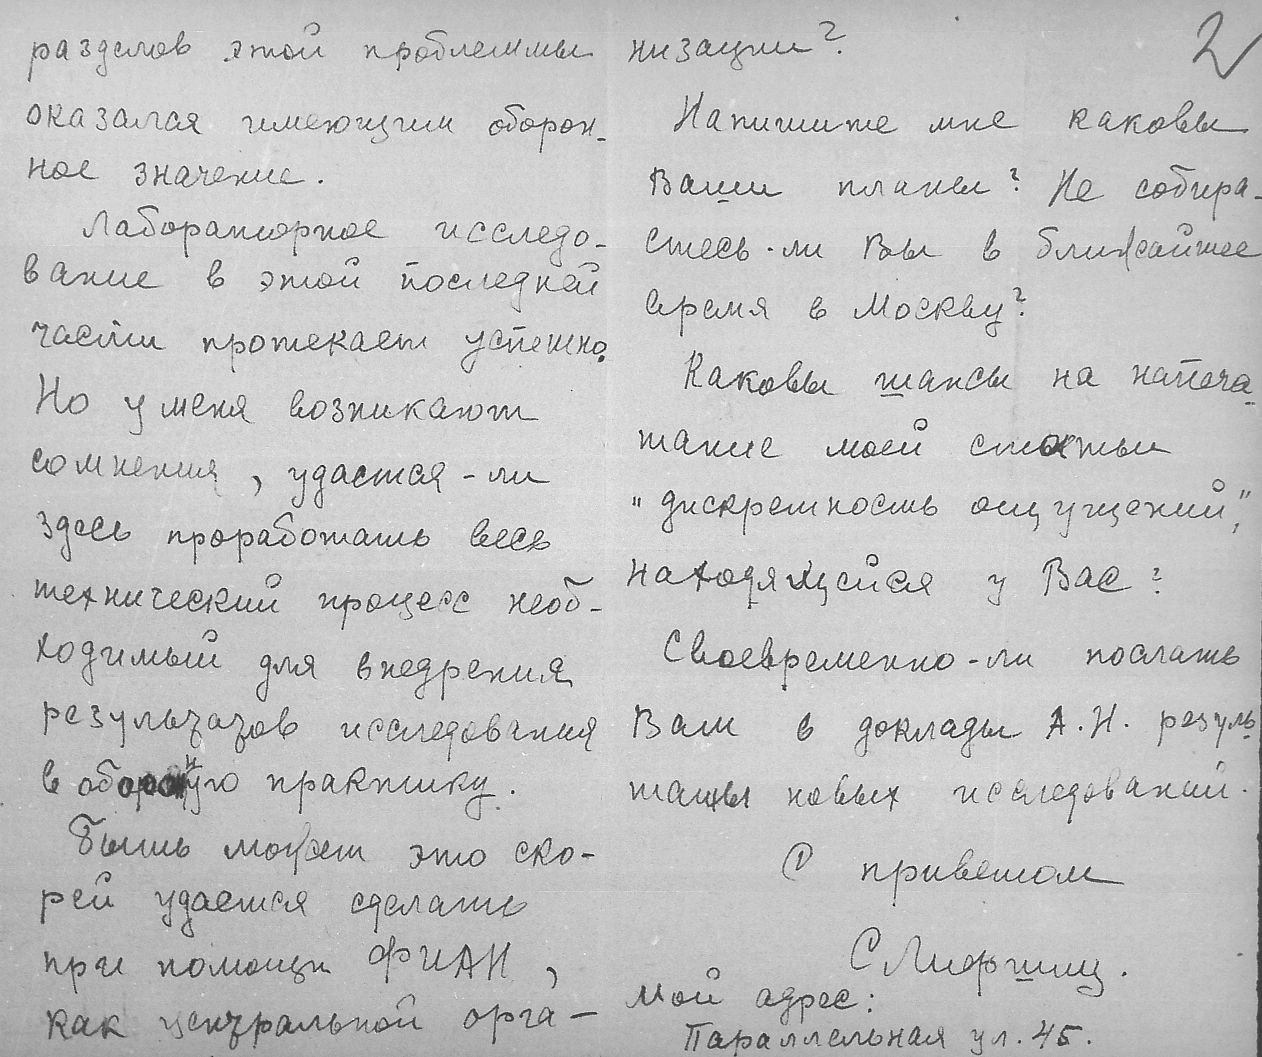 разделов этой проблеммы
оказался имеющим оборон-
ное значение.
Лабораторное исследо-
вание в этой последней
части протекает успешно.
Но у меня возникают
сомнения, удастся-ли
здесь проработать весь
технический процесс необ-
ходимый для внедрения
результатов исследования
в оборонную практику.
Быть может это ско-
рей удается сделать
при помощи ФИАН,
как центральной орга-
2
низации?
Напишите мне каковы
Ваши планы? Не собира-
етесь-ли Вы в ближайшее
время в Москву?
Каковы шансы на напеча-
тание моей статьи
"дискретность ощущений",
находящейся у Вас?
Своевременно-ли послать
Вам в доклады А.Н. резуль-
таты новых исследований.
С приветом
С Лифшиц.
Мой адрес:
Параллельная ул. 45.